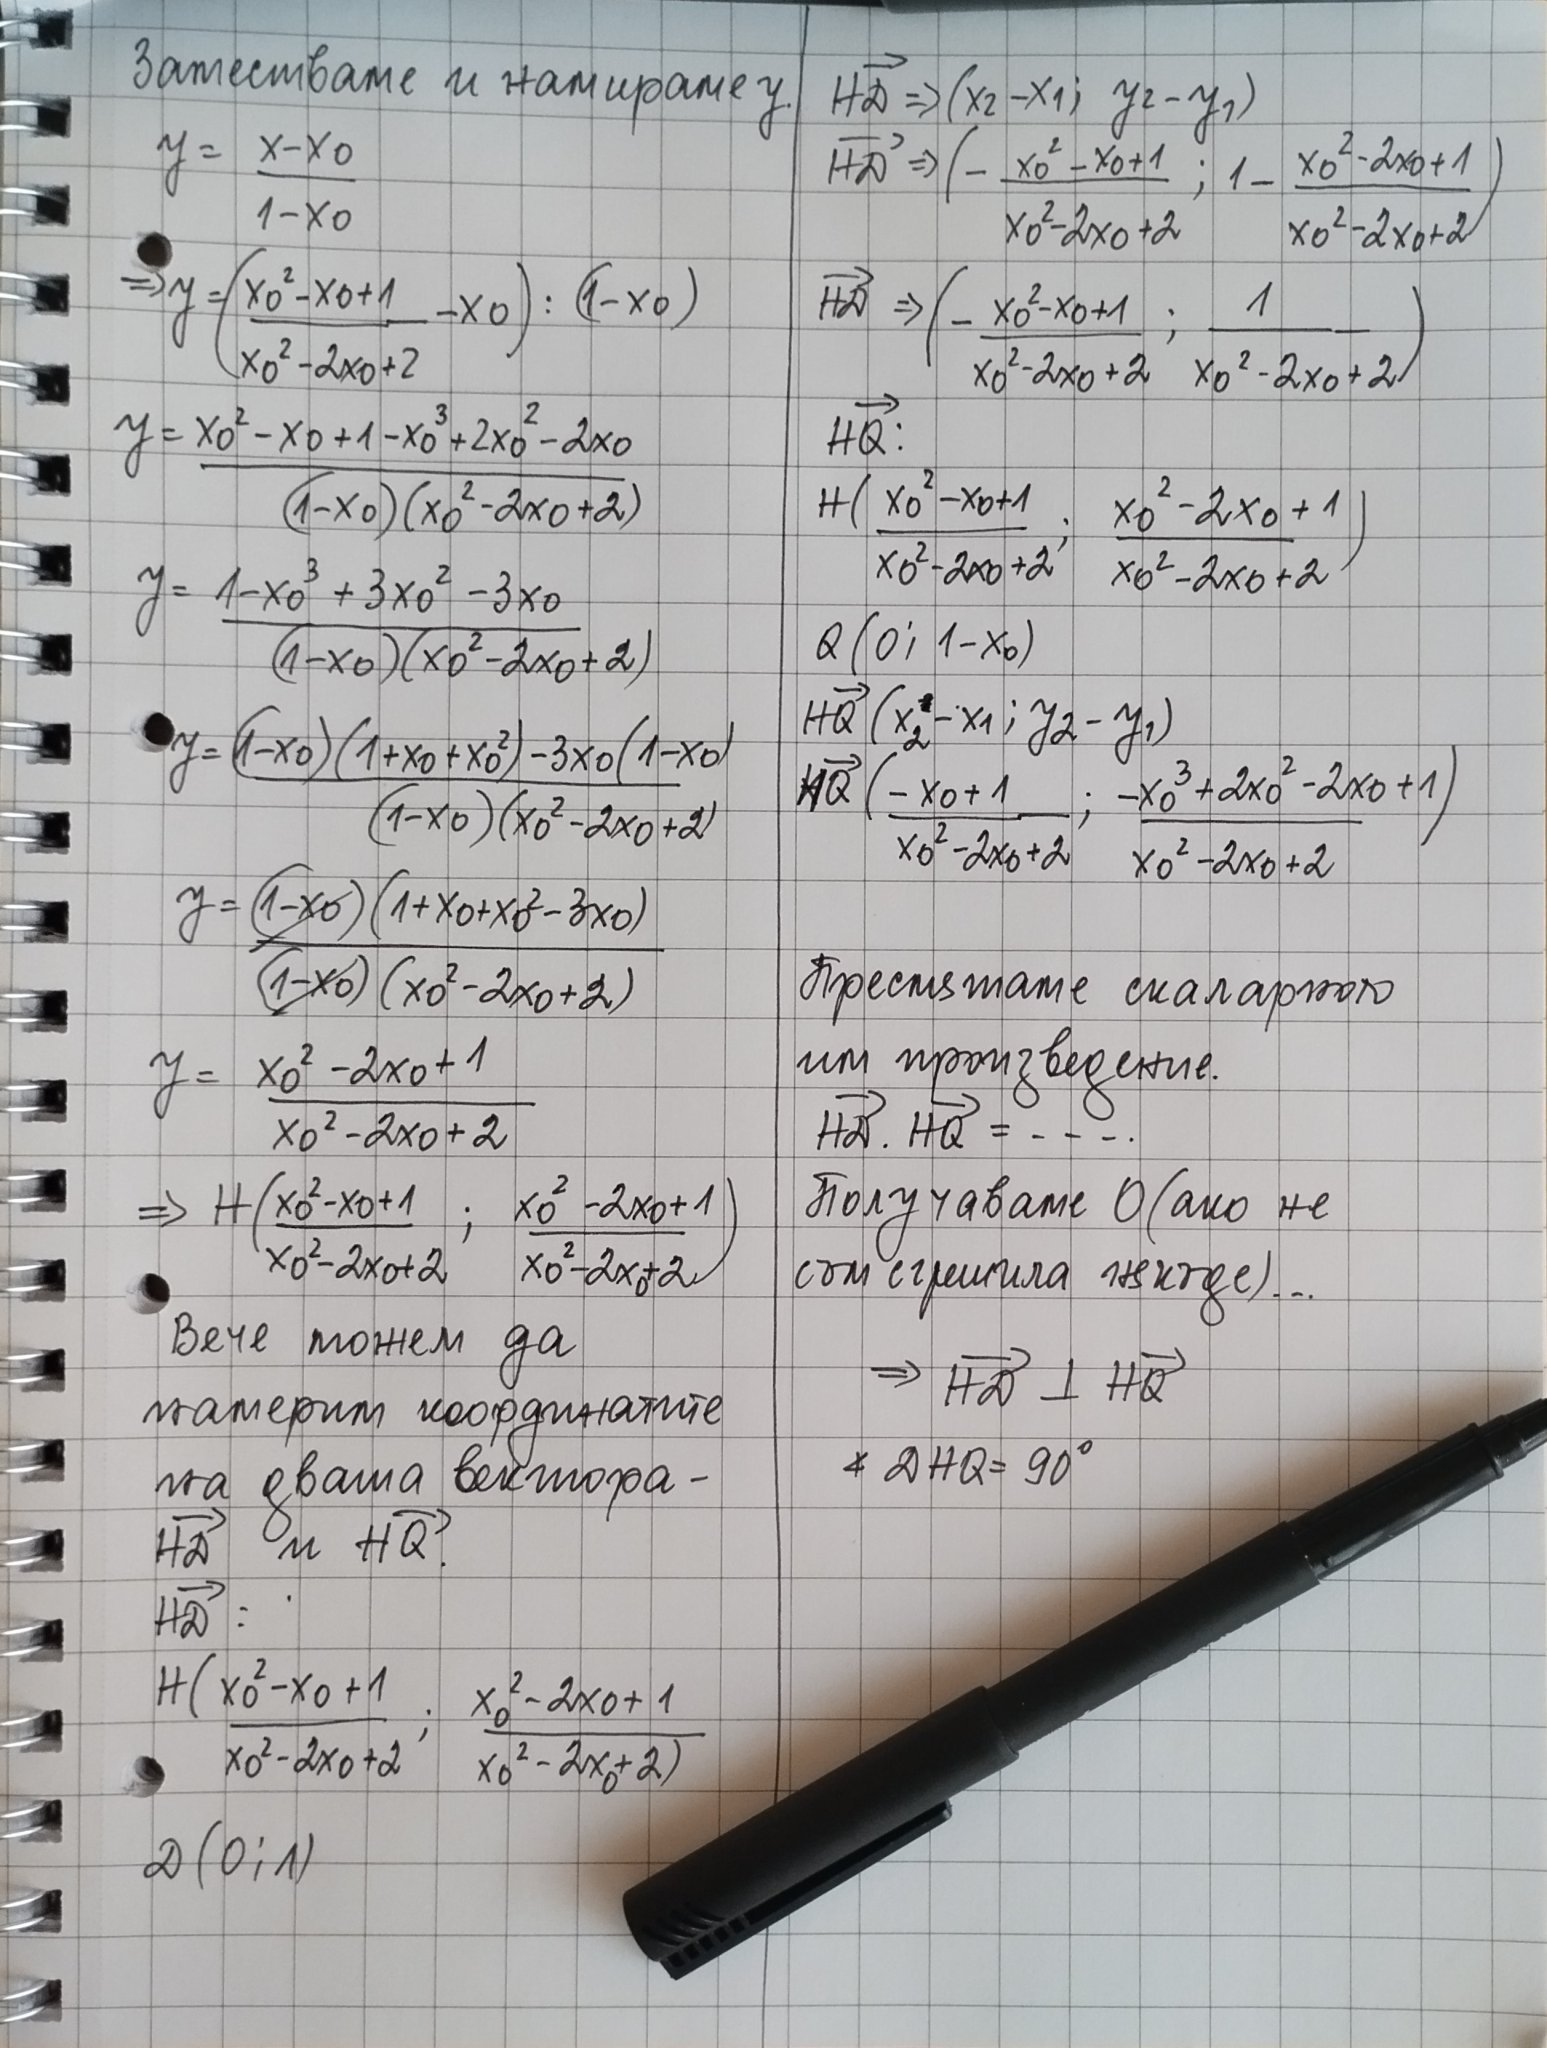 Заместваме и намираме y.
y = (x-x₀)/(1-x₀)
=> y = ((x₀²-x₀+1)/(x₀²-2x₀+2) - x₀) : (1-x₀)
y = (x₀²-x₀+1-x₀³+2x₀²-2x₀)/((1-x₀)(x₀²-2x₀+2))
y = (1-x₀³+3x₀²-3x₀)/((1-x₀)(x₀²-2x₀+2))
y = ((1-x₀)(1+x₀+x₀²)-3x₀(1-x₀)/((1-x₀)(x₀²-2x₀+2)
y = ((1-x₀)(1+x₀+x₀²-3x₀))/((1-x₀)(x₀²-2x₀+2))
y = (x₀²-2x₀+1)/(x₀²-2x₀+2)
=> H((x₀²-x₀+1)/(x₀²-2x₀+2) ; (x₀²-2x₀+1)/(x₀²-2x₀+2))
Вече можем да
намерим координатите
на двата вектора -
HD→ и HQ→.
HD→ :
H((x₀²-x₀+1)/(x₀²-2x₀+2) ; (x₀²-2x₀+1)/(x₀²-2x₀+2))
D(0;1)
HD→ => (x₂-x₁; y₂-y₁)
HD→ => (-(x₀²-x₀+1)/(x₀²-2x₀+2) ; 1-(x₀²-2x₀+1)/(x₀²-2x₀+2))
HD→ => (-(x₀²-x₀+1)/(x₀²-2x₀+2) ; 1/(x₀²-2x₀+2))
HQ→:
H((x₀²-x₀+1)/(x₀²-2x₀+2) ; (x₀²-2x₀+1)/(x₀²-2x₀+2))
Q(0; 1-x₀)
HQ→(x₂-x₁; y₂-y₁)
HQ→((-x₀+1)/(x₀²-2x₀+2) ; (-x₀³+2x₀²-2x₀+1)/(x₀²-2x₀+2))
Пресмятаме скаларното
им произведение.
HD→. HQ→ = - - - -.
Получаваме 0(ако не
съм сгрешила някъде)...
=> HD→ ⊥ HQ→
∢ DHQ= 90°